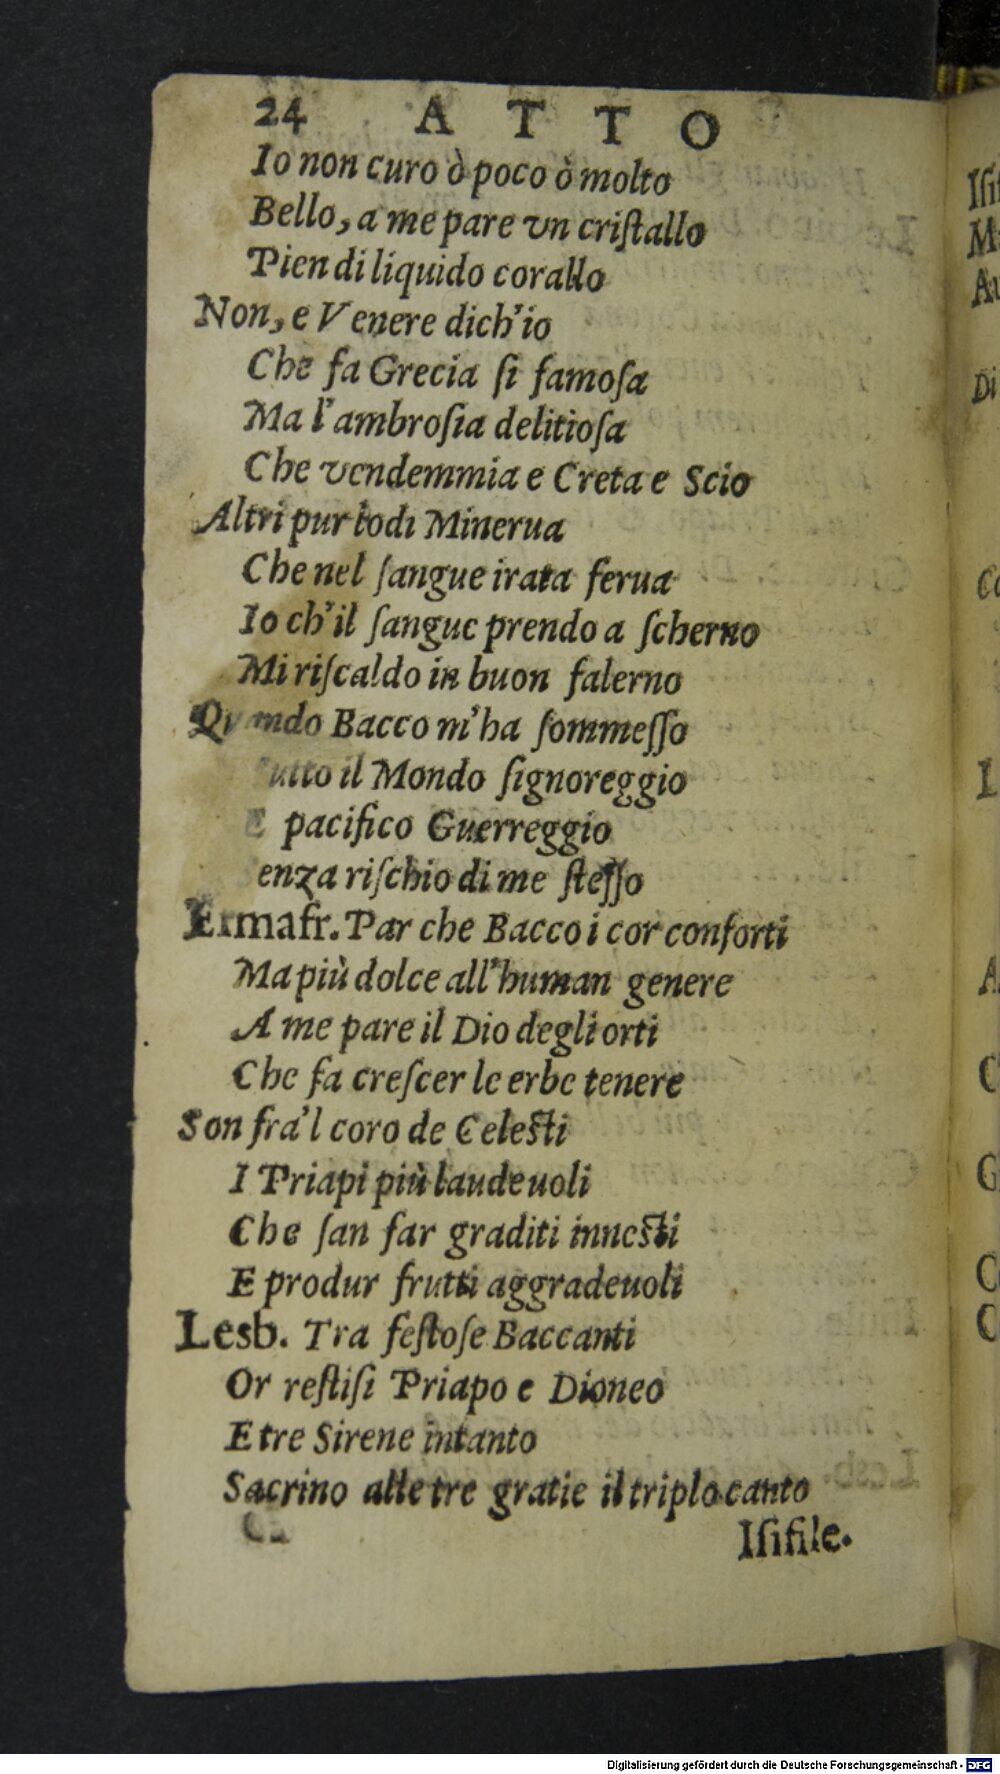 24 ATTO
Io non curo ò poco ò molto
Bello, a me pare vn criſtallo
Pien di liquido corallo
Non, e Venere dich'io
Che fa Grecia ſi famoſa
Ma l'ambroſia delitioſa
Che vendemmia e Creta e Scio
Altri pur lodi Minerua
Che nel ſangue irata ferua
Io ch'il ſangue prendo a ſcherno
Mi riſcaldo in buon falerno
Quando Bacco m'ha ſommeſſo
utto il Mondo ſignoreggio
E pacifico Guerreggio
enza riſchio di me ſteſſo
Ermafr. Par che Bacco i cor conforti
Ma più dolce all'human genere
A me pare il Dio degli orti
Che fa creſcer le erbe tenere
Son fra'l coro de Celeſti
I Priapi più laudeuoli
Che ſan far graditi inneſti
E produr frutti aggradeuoli
Lesb. Tra feſtoſe Baccanti
Or reſtiſi Priapo e Dioneo
E tre Sirene intanto
Sacrino alle tre gratie il triplo canto
Iſifile.
Digitalisierung gefördert durch die Deutsche Forschungsgemeinschaft - DFG